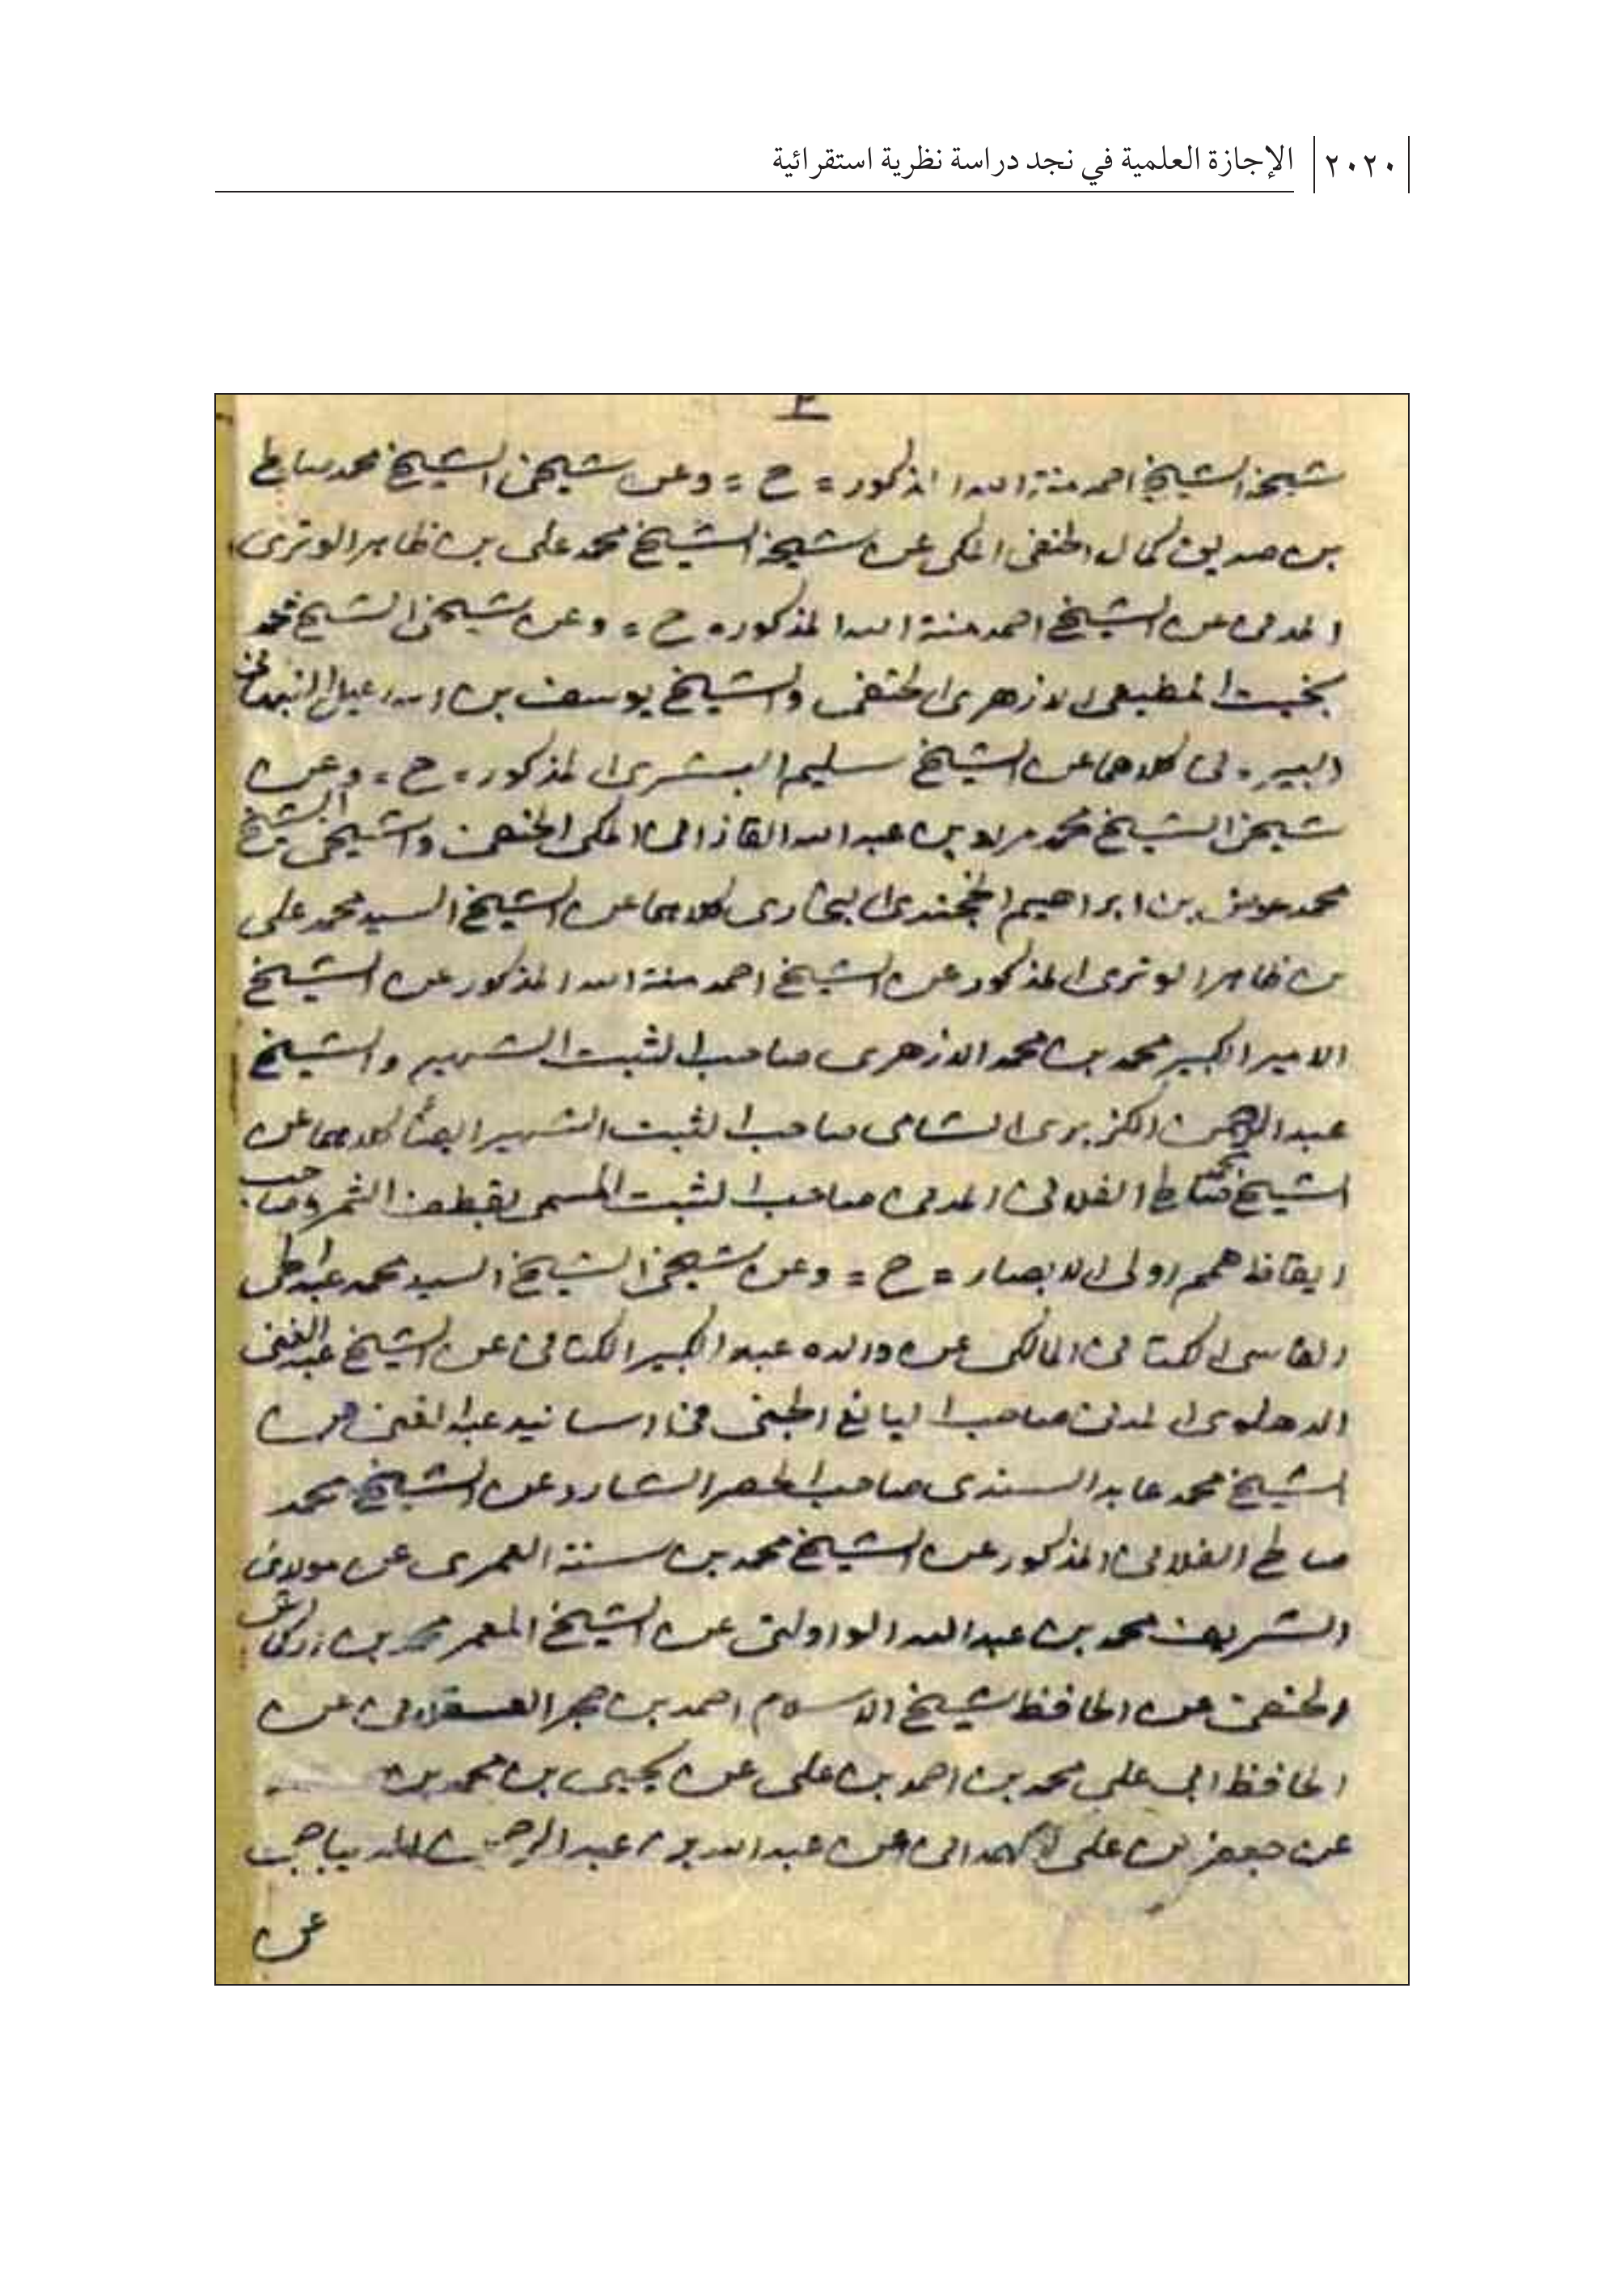 ٢٠٢٠ الإجازة العلمية في نجد دراسة نظرية استقرائية
٣
شيخه الشيخ احمد منة الله المذكور = ح = وعن شيخى الشيخ محمد صالح
بن صديق كمال الحنفى المكى عن شيخه الشيخ محمد على بن ظاهر الوترى
المدنى عن الشيخ احمد منة الله المذكور = ح = وعن شيخى الشيخ محمد
بخيت المطيعى الازهرى الحنفى والشيخ يوسف بن اسماعيل النبهانى
البيروتى كلاهما عن الشيخ سليم البشرى المذكور = ح = وعن
شيخى الشيخ محمد مراد بن عبد الله القازانى المكى الحنفى وشيخى الشيخ
محمد بن ابراهيم الخجندى البخارى كلاهما عن الشيخ السيد محمد على
بن ظاهر الوترى المذكور عن الشيخ احمد منة الله المذكور عن الشيخ
الامير الكبير محمد بن محمد الازهرى صاحب الثبت الشهير والشيخ
عبد الرحمن الكزبرى الشامى صاحب الثبت الشهير ايضا كلاهما عن
الشيخ صالح الفلانى المدنى صاحب الثبت المسمى بقطف الثمر وصاحب
ايقاظ همم اولى الابصار = ح = وعن شيخى الشيخ السيد محمد عبد الحى
الفاسى الكتانى المالكى عن والده عبد الكبير الكتانى عن الشيخ عبد الغنى
الدهلوى المدنى صاحب اليانع الجنى فى اسانيد عبد الغنى عن
الشيخ محمد عابد السندى صاحب الحصر الشارد عن الشيخ محمد
صالح الفلانى المذكور عن الشيخ محمد بن سنة العمرى عن مولاى
الشريف محمد بن عبد الله الواولتى عن الشيخ المعمر محمد بن اركماش
الحنفى عن الحافظ شيخ الاسلام احمد بن حجر العسقلانى عن
الحافظ ابى على محمد بن احمد بن على عن يحيى بن محمد بن
عن جعفر بن على الهمدانى عن عبد الله بن عبد الرحمن الديباجى
عن